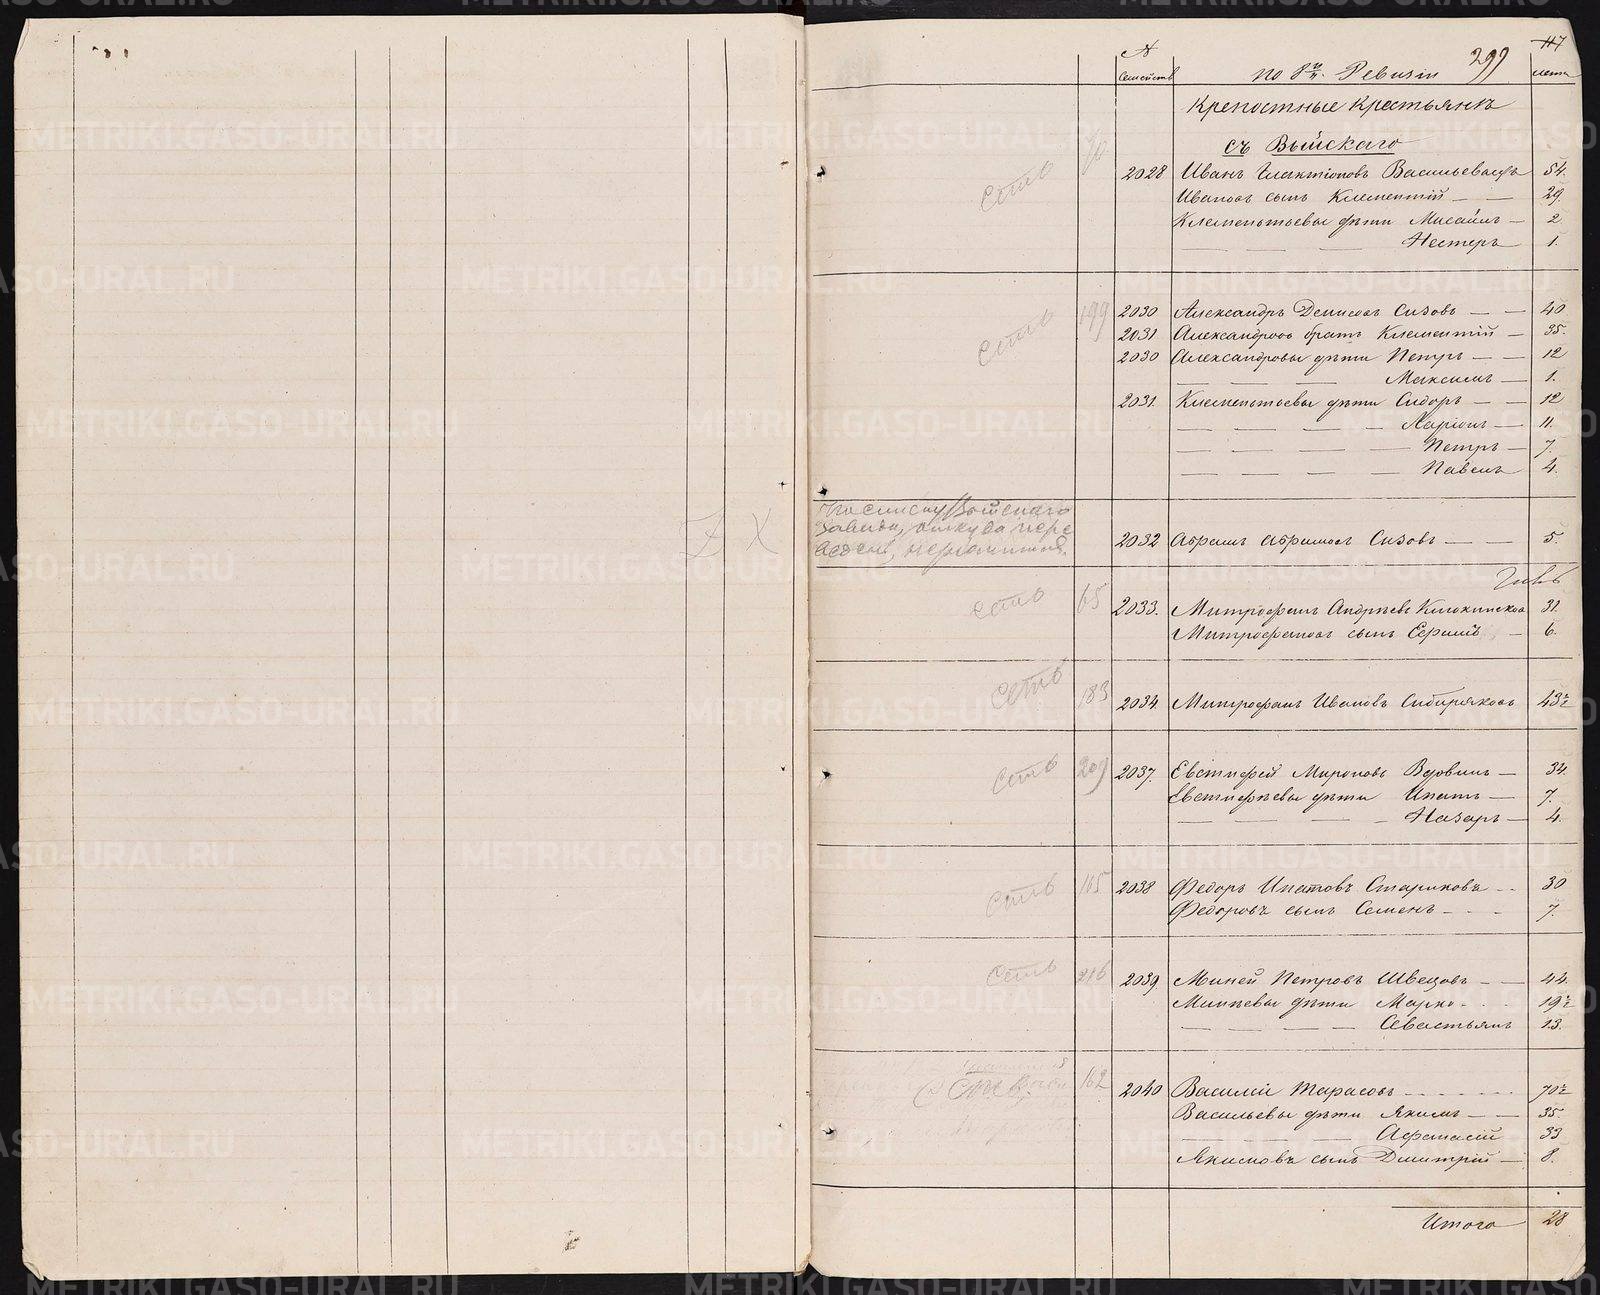 117
299
№ семейств
по 8й Ревизіи
лета
Крепостные Крестьянъ
съ Выйскаго
есть 70 2028 Иванъ Галактіоновъ Васильевыхъ 54.
Ивановъ сынъ Клементій — — 29.
Клементьевы дѣти Мисаилъ — 2
— — — Нестеръ — 1.
есть 199 2030 Александръ Денисовъ Сизовъ — — 40
2031 Александровъ братъ Клементій — 35.
2030 Александровы дѣти Петръ — — 12
— — — Максимъ — 1.
2031. Клементьевы дѣти Сидоръ — — 12
— — — — Ларіонъ — 11.
— — — — Петръ — 7.
— — — — Павелъ 4.
По списку Выйскаго
завода, откуда пере
Z X
2032 Абрамъ Абрамовъ Сизовъ — — 5.
есть 65 2033. Митрофанъ Андрѣевъ 31.
Митрофановъ сынъ Ефимъ — 6.
есть 183 2034. Митрофанъ Ивановъ Сибиряковъ 43½
есть 209 2037. Евстифей Мироновъ Вдовинъ — 34.
Евстифѣевы дѣти Ипатъ — 7.
— — — — Назаръ — 4.
есть 115 2038 Федоръ Ипатовъ Стариковъ 30
Федоровъ сынъ Семенъ 7.
есть 216 2039. Миней Петровъ Швецовъ — — 44.
Минѣевы дѣти Марко 19½
— — — — Севастьянъ 13.
есть 162 2040 Василій Тарасовъ 70½
Васильевы дѣти Якимъ — — 35.
— — — Афанасій 33
Якимовъ сынъ Дмитрій — 8.
Итого 28
METRIKI.GASO-URAL.RU